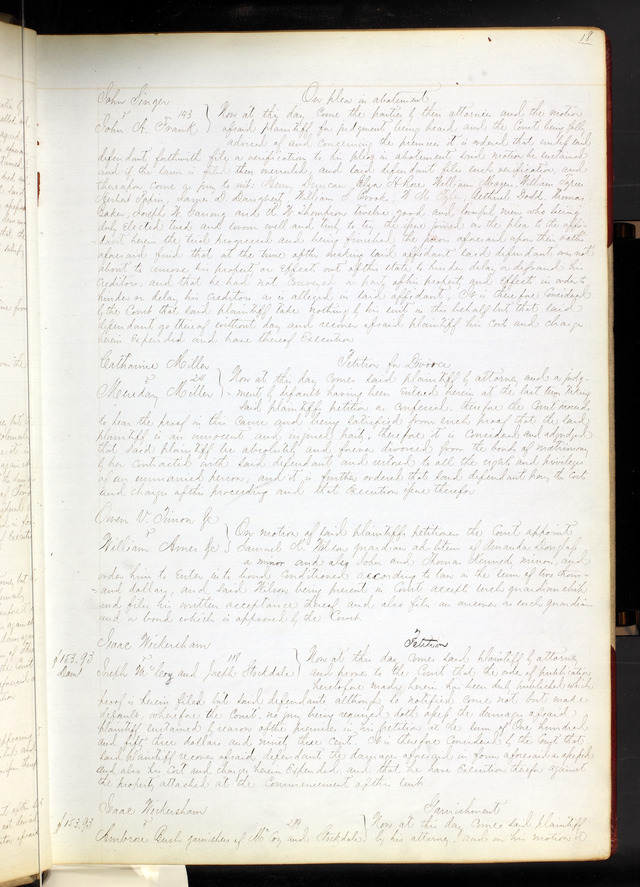 18
John Singer On plea in abatement
vs 143
John A. Frank } Now at this day come the parties by their attorneys and the motion
of said plaintiff for judgment being heard and the Court being fully
advised of and concerning the premises it is ordered that unless said
defendant forthwith file a verification to his plea in abatement said motion be sustained
and if the same is filed then overruled, and said defendant files such verification, and
thereupon come a jury to wit: Duncan William William
Daugherty, William S. Brook, Todd, Thomas
Baker, Joseph W. and Thompson twelve good and lawful men who being
duly elected tried and sworn well and truly to try the issue joined on the plea to the affi-
davit herein the trial progressed and being finished the jury aforesaid upon their oaths
aforesaid find that at the time of the making said affidavit said defendant was not
about to remove his property or effects out of this state to hinder delay or defraud his
creditors, and that he had not conveyed a part of his property and effects in order to
hinder or delay his creditors as is alleged in said affidavit, It is therefore considered
by the Court that said plaintiff take nothing by his suit in this behalf but that said
defendant go thereof without day and recover of said plaintiff his cost and charges
herein expended and have thereof Execution
Catharine Miller Petition for Divorce
vs
Meriday Miller } Now at this day comes said plaintiff by attorney and a judg-
ment by default having been entered herein at the last term taking
said plaintiffs petition as confessed, therefore the Court proceeds
to hear the proof in this cause and being satisfied from such proof that the said
plaintiff is an innocent and injured party, therefore it is considered and adjudged
that said plaintiff be absolutely and forever divorced from the bonds of matrimony
by her contracted with said defendant and restored to all the rights and privileges
of an unmarried person, and it is further ordered that said defendant pay the Costs
and charges of this proceeding and that Execution issue therefor
Owen V. Timon Jr
vs
William Ames Jr } On motion of said plaintiffs petitioner the Court appoint
Samuel K. Wilson guardian ad litem of Amanda Douglass
a minor and also John and Thomas Kennedy, minors, and
order him to enter into bond conditioned according to law in the sum of two thous-
and dollars, and said Wilson being present in Court accepts such guardianship
and files his written acceptance thereof and also files an answer as such guardian
and a bond which is approved by the Court
Isaac Wickersham Petition
$153.93 vs 118
Dam Joseph McCoy and Joseph Stockdale } Now at this day comes said plaintiff by attorney
and proves to the Court that the order of publication
heretofore made herein has been duly published, which
proof is herein filed but said defendants although so notified come not but make
default, wherefore the Court, no jury being required doth assess the damages of said
plaintiff sustained by reason of the premises in his petition at the sum of One hundred
and fifty three dollars and ninety three cents It is therefore considered by the Court that
said plaintiff recover of said defendants the damages aforesaid in form aforesaid assessed
and also his Cost and charges herein Expended, and that he have Execution therefor against
the property attached at the commencement of this suit
Isaac Wickersham Garnishment
$153.93 vs
Ambrose Bush garnishee of McCoy and Stockdale } Now at this day comes said plaintiff
by his attorney and on his motion it